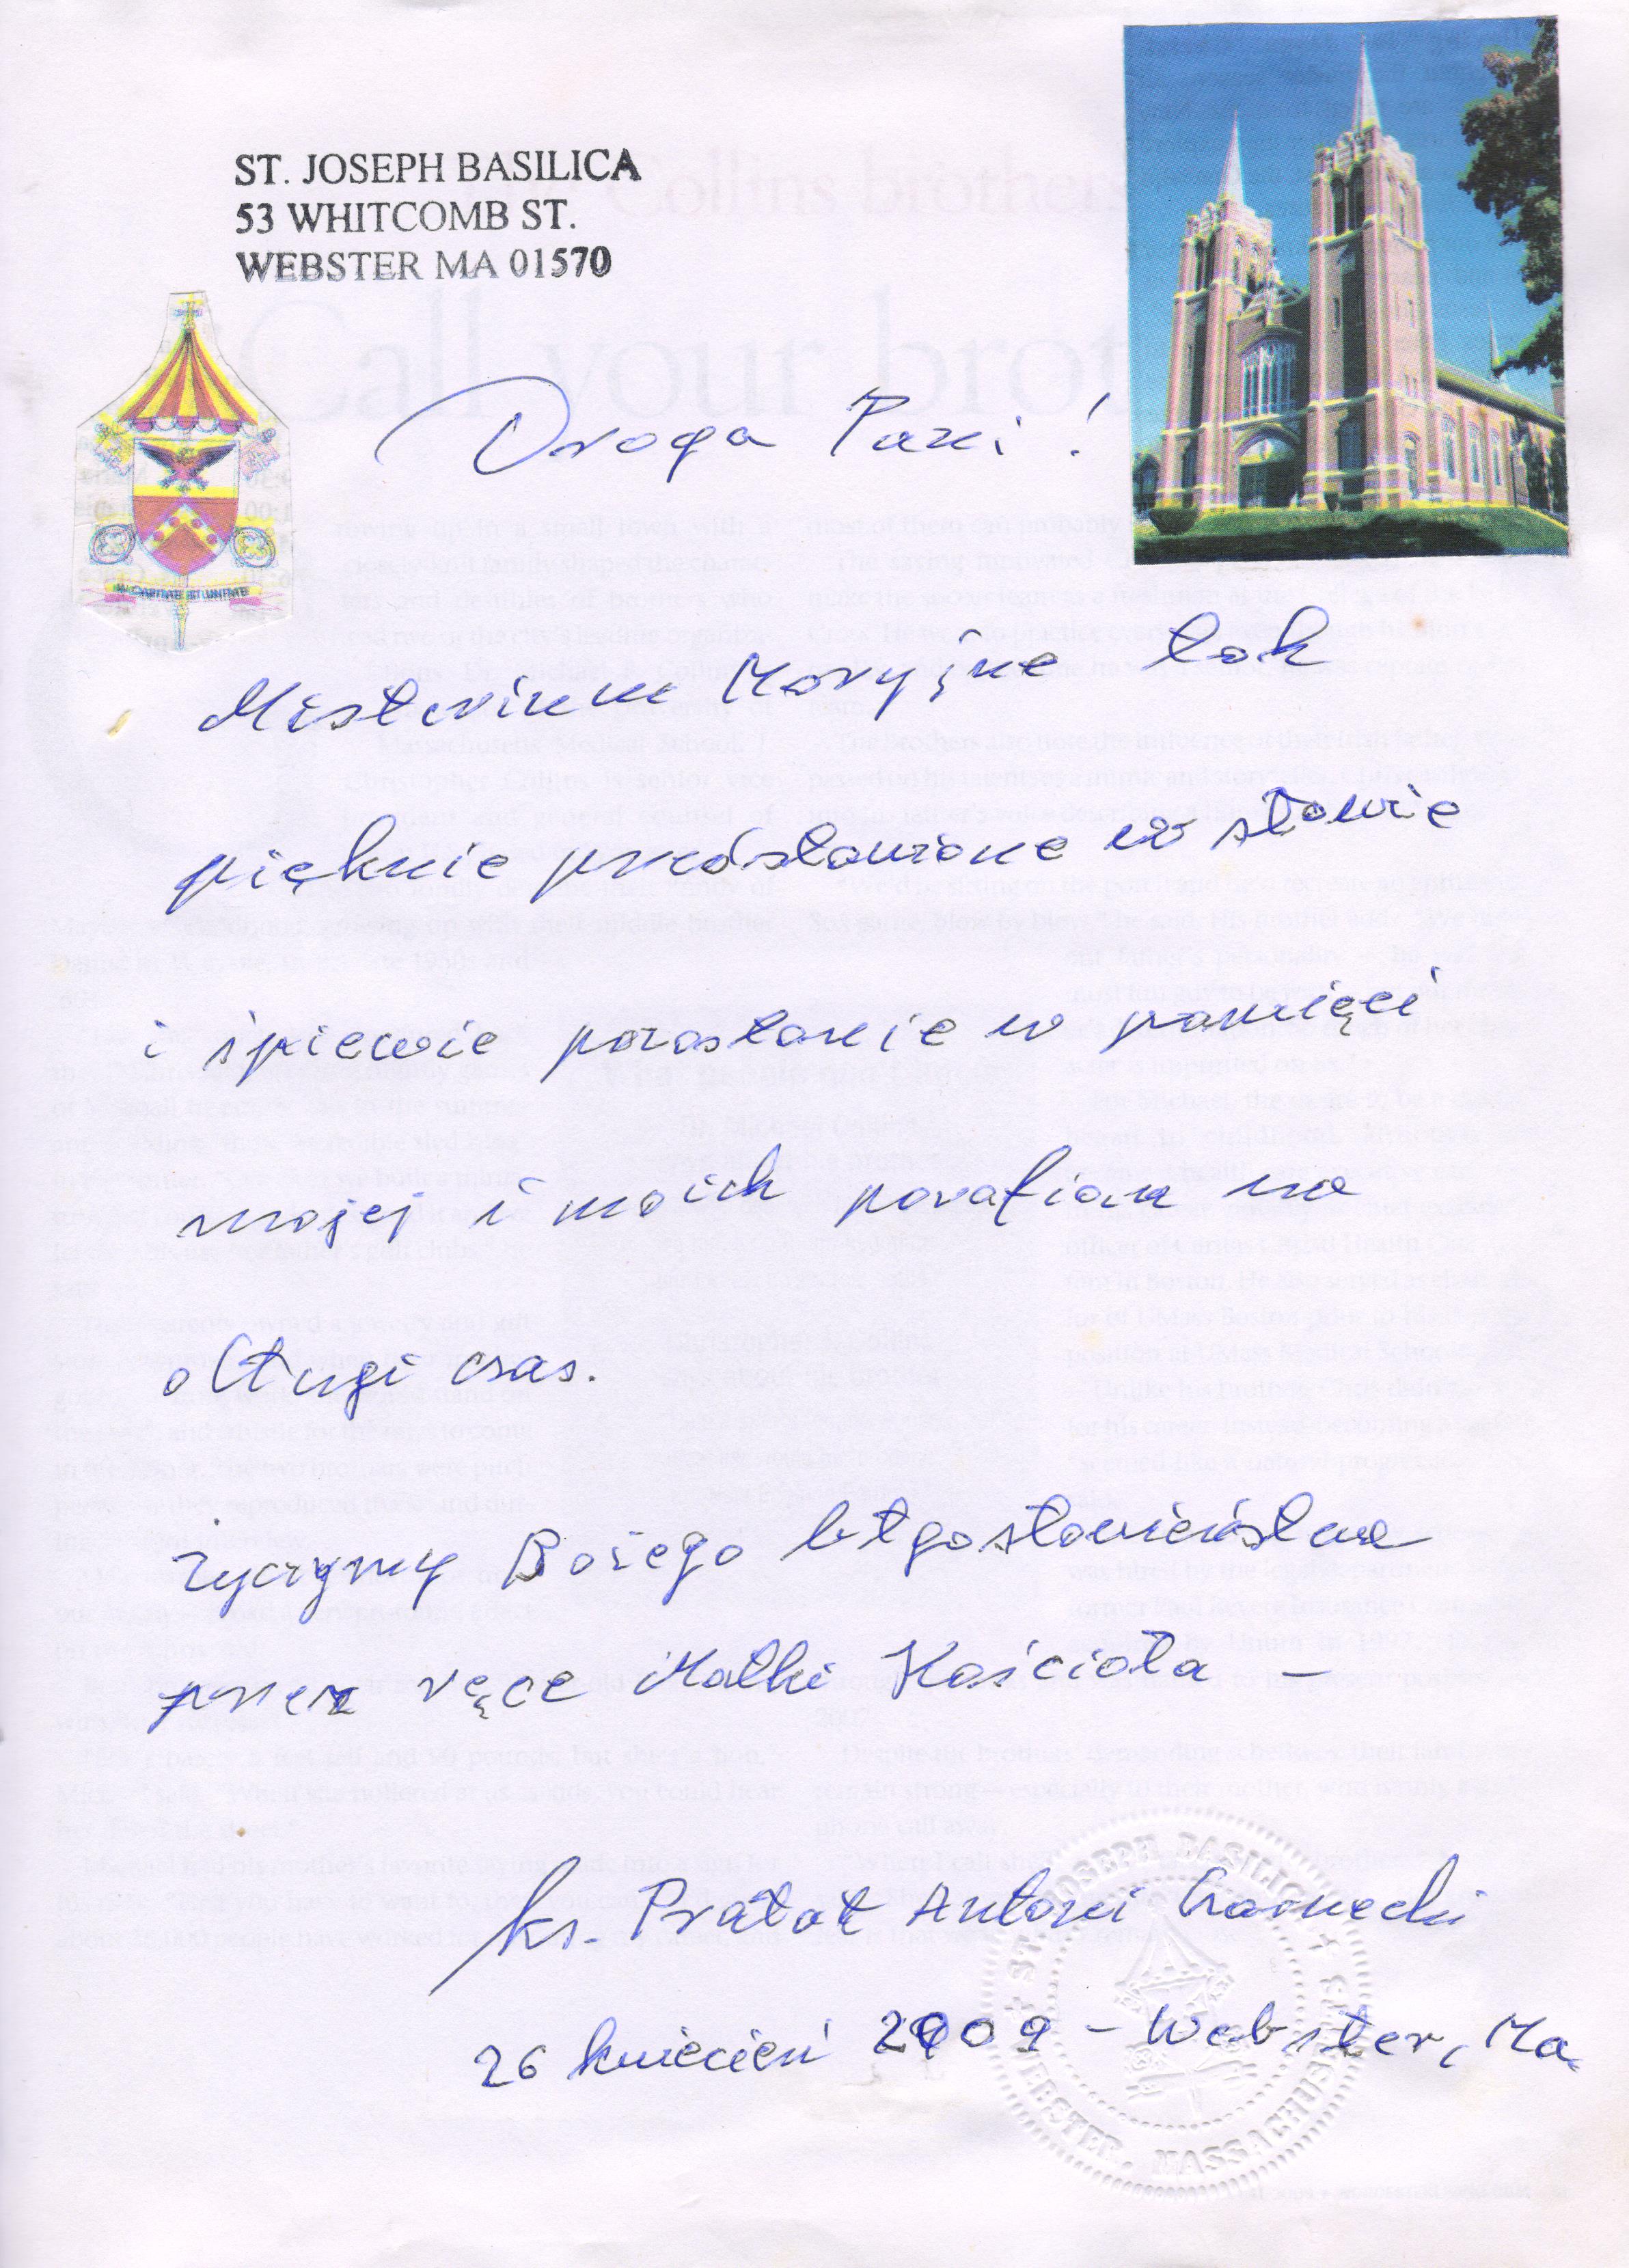 ST. JOSEPH BASILICA
53 WHITCOMB ST.
WEBSTER MA 01570
Droga Pani!
Misterium Maryjne tak
pięknie przedstawione w słowie
i śpiewie pozostanie w pamięci
mojej i moich parafian na
długi czas.
życzymy Bożego błgosławieństwa
przez ręce Matki Kościoła –
ks. Prałat Antoni Czarnecki
26 kwiecień 2009 – Webster, Ma.
ST. JOSEPH BASILICA
WEBSTER, MASSACHUSETTS